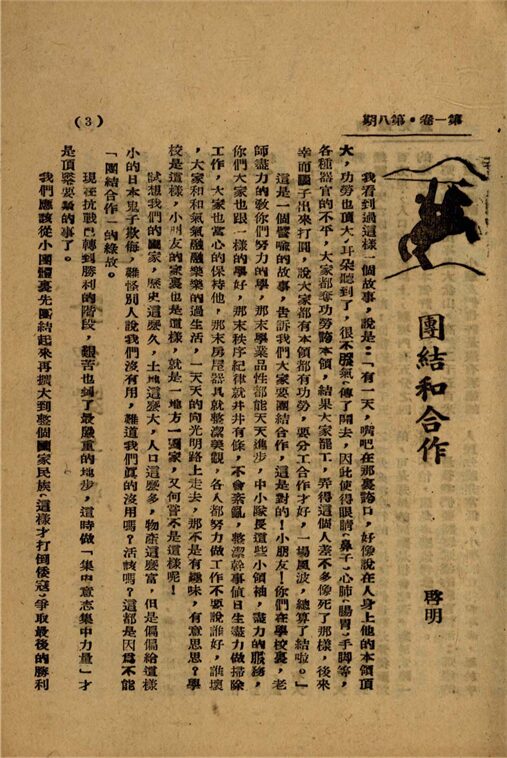 第一卷・第八期
(3)
團結和合作
啓明
我看到過這樣一個故事,說是:「有一天,嘴吧在那裏誇口,好像說在人身上他的本領頂
大,功勞也頂大,耳朵聽到了,很不服氣,傳了開去,因此使得眼睛,鼻子,心肺,腸胃,手脚等,
各種器官的不平,大家都奪功勞誇本領,結果大家罷工,弄得這個人差不多像死了那樣,後來
幸而腦子出來打圓,說大家都有本領都有功勞,要分工合作才好,一場風波,總算了結啦。」
這是一個譬喻的故事,告訴我們大家要團結合作,這是對的!小朋友!你們在學校裏,老
師盡力的敎你們努力的學,那末學業品性都能天天進步,中小隊長這些小領袖,盡力的服務,
你們大家也跟一樣的學好,那末秩序紀律就井井有條,不會紊亂,整潔幹事値日生盡力做掃除
工作,大家也當心的保持他,那末房屋器具就整潔美觀,各人都努力做工作不要說誰好,誰壞
,大家和和氣氣融融樂樂的過生活,一天天的向光明路上走去,那不是有趣味,有意思思?學
校是這樣,小朋友的家裏也是這樣,就是一地方一國家,又何嘗不是這樣呢!
試想我們的國家,歷史這麼久,土地這麼大,人口這麼多,物產這麼富,但是偏偏給這樣
小的日本鬼子欺侮,難怪別人說我們沒有用,難道我們眞的沒用嗎?活該嗎?這都是因爲不能
「團結合作」的緣故。
現在抗戰已轉到勝利的階段,艱苦也到了最嚴重的地步,這時做「集中意志集中力量」才
是頂緊要的事了。
我們應該從小團體裏先團結起來再擴大到整個國家民族,這樣才打倒倭寇,爭取最後的勝利